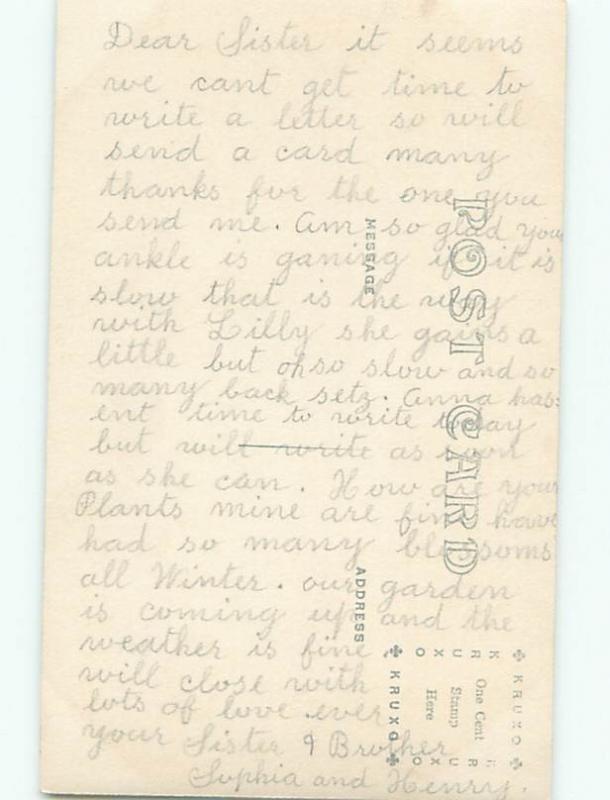 Dear Sister it seems
we cant get time to
write a letter so will
send a card many
thanks for the one you
send me. am so glad your
ankle is ganing if it is
slow that is the way
with Lilly she gains a
little but oh so slow and so
many back setz. Anna has:
ent time to write today
but will write as soon
as she can. How are your
Plants mine are fine have
had so many blossoms
all Winter. our garden
is coming up and the
weather is fine
will close with
lots of love .ever
your Sister & Brother
Sophia and Henry.
POST CARD
MESSAGE
ADDRESS
KRUXO
KRUXO
One Cent
Stamp
Here
KRUXO
KRUXO